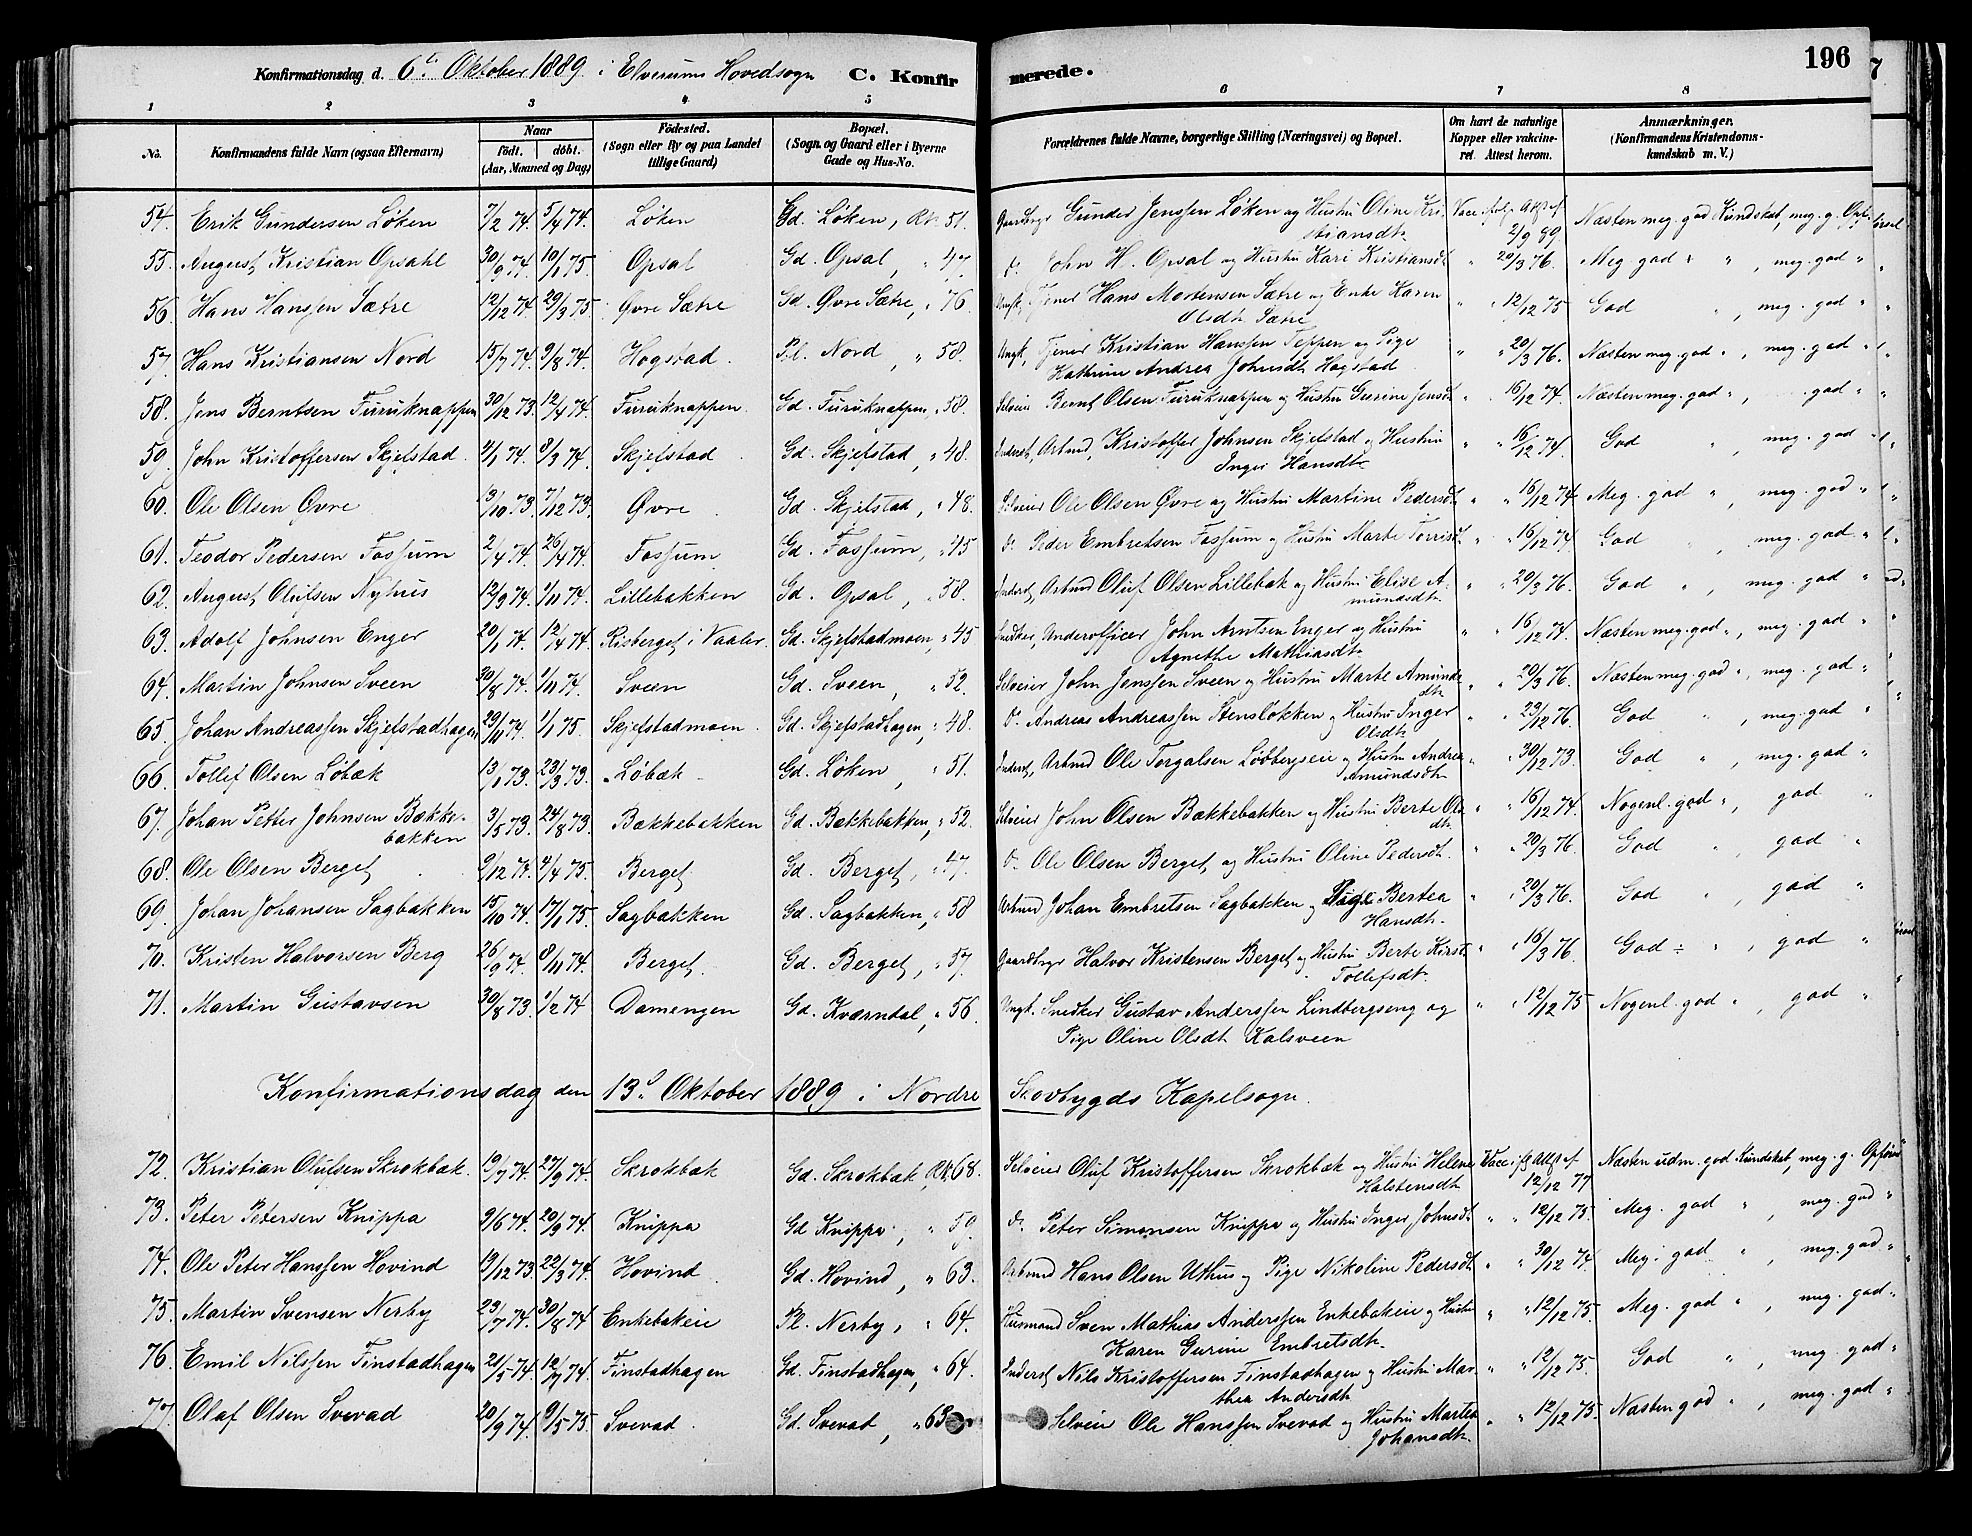 196
Konfirmationsdag d. 6te Oktober 1889 i Elverums Hovedsogn C. Konfirmerede.
1 2 3 4 5 6 7 8
No. Konfirmandens fulde Navn (ogsaa Efternavn) Naar födt. döbt. (Aar, Maaned og Dag) Födested. (Sogn eller By og paa Landet tillige Gaard) Bopæl. (Sogn og Gaard eller i Byerne Gade og Hus-No. Forældrenes fulde Navne, borgerlige Stilling (Næringsvei) og Bopæl. Om havt de naturlige Kopper eller vakcineret. Attest herom. Anmærkninger. (Konfirmandens Kristendomskundskab m. V.)
54. Erik Gundersen Løken 7/2 74. 5/4 74. Løken Gd. Løken, Rk. 51. Gaardbrgr Gunder Jenssen Løken og Hustru Oline Kri- Vacc. ifølge Attst af Næsten meg. god Kundskab, meg. g. Opf.
stiansdtr 2/9 89
55. August Kristian Opsahl 30/9 74. 10/1 75. Opsal Gd. Opsal, " 47. do. John H. Opsal og Hustru Kari Kristiansdt " 20/3 76. Meg. god " " , meg. god "
56. Hans Hansen Sætre 12/12 74. 29/3 75. Øvre Sætre Gd. Øvre Sætre, " 76. Ungk., Tjener Hans Mortensen Sætre og Enke Karen " " 12/12 75 God " , meg. god "
Olsdtr Sætre
57. Hans Kristiansen Nord 15/7 74. 9/8 74. Hogstad. Pl. Nord, " 58. Ungk., Tjener Kristian Hanssen Teppen og Pige " " 20/3 76. Næsten meg. god " , meg. god "
Kathrine Andrea Johnsdt Hogstad
58. Jens Berntsen Furuknappen 30/12 73. 12/4 74. Furuknappen. Gd. Furuknappen, " 58. Selveier Bernt Olsen Furuknappen og Hustru Gurine Jensdt " " 16/12 74. Næsten meg. god " , god "
59. John Kristoffersen Skjefstad. 4/1 74. 8/3 74. Skjefstad Gd. Skjefstad, " 48. Inderst, Arbmd, Kristoffer Johnsen Skjefstad og Hustru " " 16/12 74. God " , meg. god "
Inger Hansdtr
60. Ole Olsen Øvre 13/10 73. 7/12 73. Øvre Gd. Skjefstad, " 48. Selveier Ole Olsen Øvre og Hustru Martine Pedersdt " " 16/12 74. Meg. god " , meg. god "
61. Teodor Pedersen Fossum 2/4 74. 26/4 74. Fossum Gd. Fossum, " 45 do. Peder Embretsen Fossum og Hustru Marte Torrisdt " " 16/12 74 God " , meg. god "
62. August Olufsen Nyhus 12/9 74. 1/11 74. Lillebakken Gd. Opsal, " 58. Inderst, Arbmd Oluf Olsen Lillebak og Hustru Elise A- " " 20/3 76. God " , meg. god "
mundsdtr.
63. Adolf Johnsen Enger 20/1 74. 12/4 74. Risberget i Vaaler. Gd. Skjefstadmoen, " 45 Snedker, Underofficer John Arntsen Enger og Hustru " " 16/12 74. Næsten meg. god " , meg. god "
Agnethe Mathiasdtr
64. Martin Johnsen Sveen 30/8 74. 1/11 74. Sveen Gd. Sveen, " 52. Selveier John Jenssen Sveen og Hustru Marte Amunds- " " 20/3 76. Næsten meg. god " , meg. god "
dtr
65. Johan Andreassen Skjefstadhagen 29/11 74. 1/1 75. Skjefstadmoen. Gd. Skjefstadhagen, " 48. do. Andreas Andreassen Stensløkken og Hustru Inger " " 23/12 76. God " , meg. god "
Olsdtr
66. Tollef Olsen Løbæk 13/1 73. 23/3 73. Løbæk Gd. Løken, " 51. Inderst, Arbmd Ole Torgalsen Løvbergseie og Hustru Andrea " " 30/12 73. God " , meg. god "
Amundsdtr
67. Johan Petter Johnsen Bække- 3/5 73. 24/8 73. Bækkebakken Gd. Bækkebakken, " 52. Selveier John Olsen Bækkebakken og Hustru Berte Ols- " " 16/12 74. Nogenl. god " , god "
bakken dtr.
68. Ole Olsen Berget 9/12 74. 4/4 75. Berget. Gd. Berget, " 47. do. Ole Olsen Berget, og Hustru Oline Pedersdt. " " 20/3 76. God " , god "
69. Johan Johansen Sagbakken 15/10 74. 17/1 75. Sagbakken Gd. Sagbakken, " 58 Arbmd Johan Embretsen Sagbakken og Pige Bertea " " 20/3 76. God " , god "
Hansdtr.
70. Kristen Halvorsen Berg 26/9 74. 8/11 74. Berget. Gd. Berget, " 57. Gaardbrgr Halvor Kristensen Berget og Hustru Berte Kirst. " " 16/3 76. God ÷ " , god "
Tollefsdtr.
71. Martin Gustavsen 30/8 73. 1/2 74 Damengen Gd. Kværndal, " 56. Ungk. Snedker Gustav Anderssen Lindbergseng og " " 12/12 75 Nogenl. god " , god "
Pige Oline Olsdt Kalsveen
Konfirmationsdag den 13de Oktober 1889 i Nordre Skovbygds Kapelsogn.
72. Kristian Olufsen Skrokbæk. 19/7 74. 27/9 74. Skrokbæk Gd. Skrokbæk, Rk. 68. Selveier Oluf Kristoffersen Skrokbæk og Hustru Helene Vacc. ifg Attst af Næsten udm. god Kundskab, meg. g. Opførsel
Halstensdtr 12/12 77
73. Peter Petersen Knippa 9/6 74. 20/9 74. Knippa Gd Knippa, " 59. do. Peter Simensen Knippa og Hustru Inger Johnsdt " " 12/12 75. Meg. god " , meg. god "
74. Ole Peter Hanssen Hovind 13/12 73. 22/3 74. Hovind Gd. Hovind, " 63. Arbmd Hans Olsen Uthus og Pige Nikoline Pedersdt " " 30/12 74. Meg. god " , meg. god "
75. Martin Svensen Nerby 23/7 74. 30/8 74 Enkebakeie Pl. Nerby, " 64. Husmand Sven Mathias Anderssen Enkebakeie og Hustru " " 12/12 75. Meg. god " , meg. god "
Karen Gurine Embretsdtr.
76. Emil Nilssen Finstadhagen 21/5 74. 12/7 74. Finstadhagen Gd. Finstadhagen, " 64. Inderst Nils Kristoffersen Finstadhagen og Hustru Mar- " " 12/12 75. God " , meg. god "
thea Andersdtr
77. Olaf Olsen Svevad 20/9 74. 9/5 75. Svevad. Gd. Svevad, " 63 Selveier Ole Hanssen Svevad og Hustru Martea " " 12/12 75. Næsten god " , meg. god "
Johansdtr.